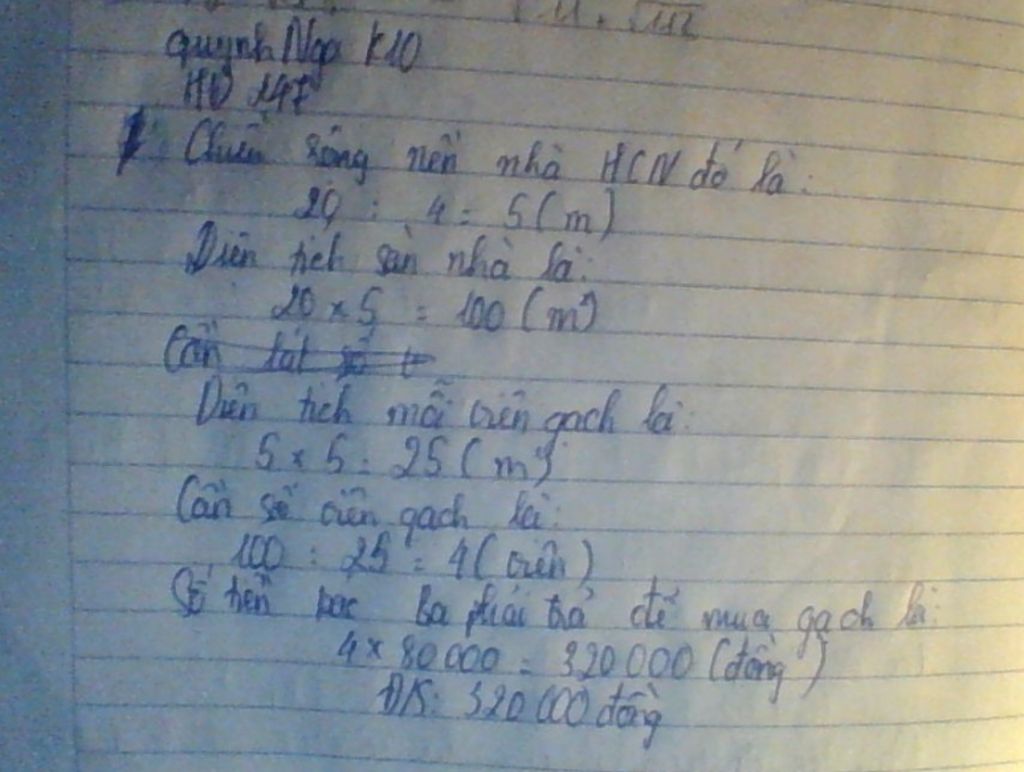 Quỳnh Nga K10
HD 147
1. Chiều rộng nền nhà HCN đó là:
20 : 4 = 5 (m)
Diên tích sàn nhà là:
20 x 5 = 100 (m²)
Cần tất số
Diên tích mỗi viên gạch là:
5 x 5 = 25 (m²)
Cần số viên gạch là:
100 : 25 = 4 (viên)
Số tiền bác Ba phải trả để mua gạch là:
4 x 80 000 = 320 000 (đồng)
ĐS: 320 000 đồng